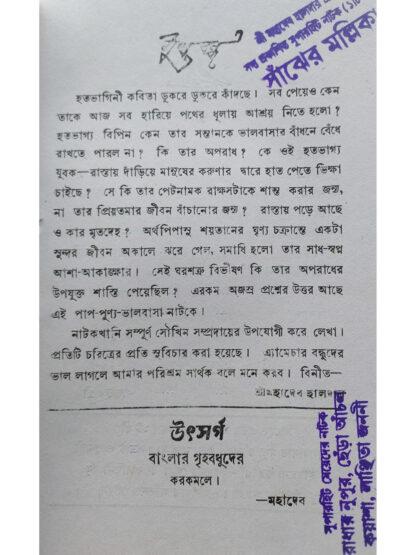 শ্রী মহাদেব হালদার
নব প্রকাশিত সুপারহিট নাটক
সাঁঝের মল্লিকা
হতভাগিনী কবিতা ডুকরে ডুকরে কাঁদছে। সব পেয়েও কেন
তাকে আজ সব হারিয়ে পথের ধূলায় আশ্রয় নিতে হলো?
হতভাগ্য বিপিন কেন তার সন্তানকে ভালবাসার বাঁধনে বেঁধে
রাখতে পারল না? কি তার অপরাধ? কে ওই হতভাগ্য
যুবক—রাস্তায় দাঁড়িয়ে মানুষের করুণার দ্বারে হাত পেতে ভিক্ষা
চাইছে? সে কি তার পেটনামক রাক্ষসটাকে শান্ত করার জন্য,
না তার প্রিয়তমার জীবন বাঁচানোর জন্য? রাস্তায় পড়ে আছে
ও কার মৃতদেহ? অর্থপিপাসু শয়তানের ঘৃণ্য চক্রান্তে একটা
সুন্দর জীবন অকালে ঝরে গেল, সমাধি হলো তার সাধ-স্বপ্ন
আশা-আকাঙ্ক্ষার। সেই ঘরশত্রু বিভীষণ কি তার অপরাধের
উপযুক্ত শাস্তি পেয়েছিল? এরকম অজস্র প্রশ্নের উত্তর আছে
এই পাপ-পুণ্য-ভালবাসা নাটকে।
নাটকখানি সম্পূর্ণ সৌখিন সম্প্রদায়ের উপযোগী করে লেখা।
প্রতিটি চরিত্রের প্রতি সুবিচার করা হয়েছে। এ্যামেচার বন্ধুদের
ভাল লাগলে আমার পরিশ্রম সার্থক বলে মনে করব। বিনীত—
শ্রীমহাদেব হালদার
উৎসর্গ
বাংলার গৃহবধূদের
করকমলে।
—মহাদেব
সুপারহিট মেয়েদের নাটক
রাধার নুপুর, ছেঁড়া আঁচল
কয়াশা, লাঞ্ছিতা জননী